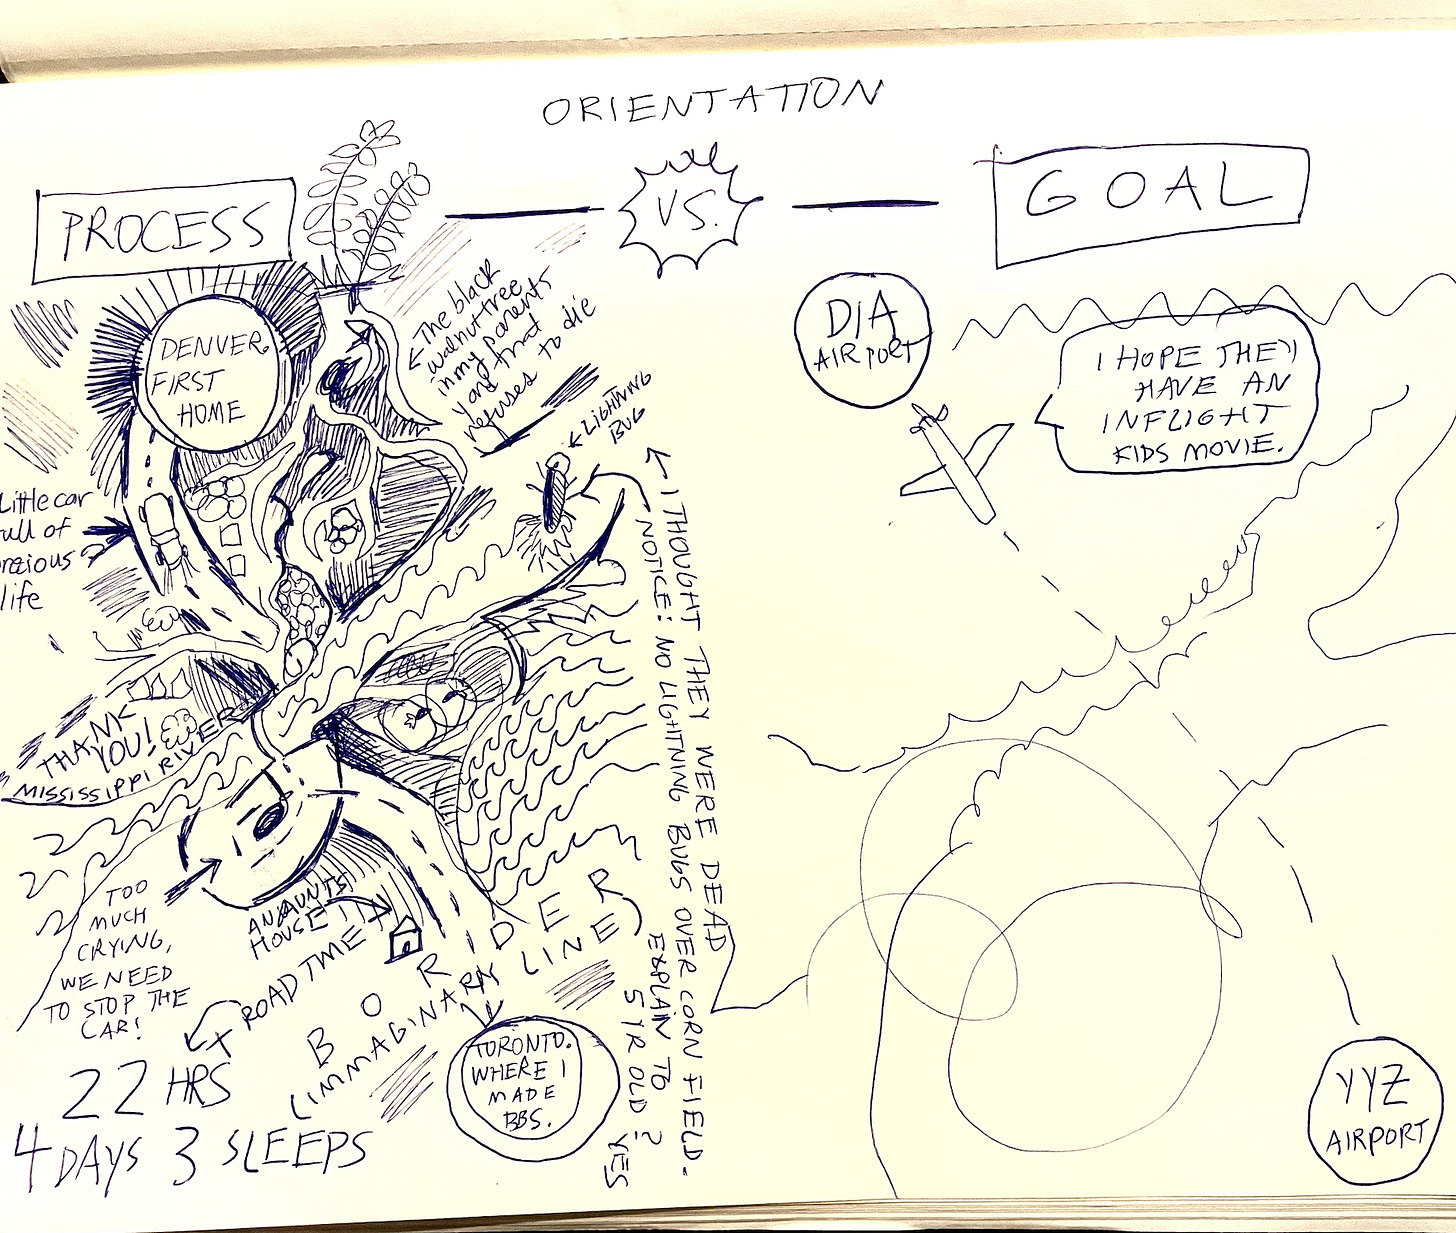 ORIENTATION
PROCESS
VS.
GOAL
DENVER.
FIRST
HOME
The black
walnut tree
in my parents
yard that
refuses to die
LIGHTNING
BUG
Little car
full of
precious
life
THANK
YOU!
MISSISSIPPI RIVER
TOO
MUCH
CRYING,
WE NEED
TO STOP THE
CAR!
AUNTS
HOUSE
ROAD TIME
22 HRS
4 DAYS 3 SLEEPS
BORDER
(IMMAGINARY LINE)
TORONTO.
WHERE I
MADE
BBS.
I THOUGHT THEY WERE DEAD
NOTICE: NO LIGHTNING BUGS OVER CORN FIELD.
EXPLAIN TO
5 YR OLD? YES
DIA
AIRPORT
I HOPE THEY
HAVE AN
INFLIGHT
KIDS MOVIE.
YYZ
AIRPORT